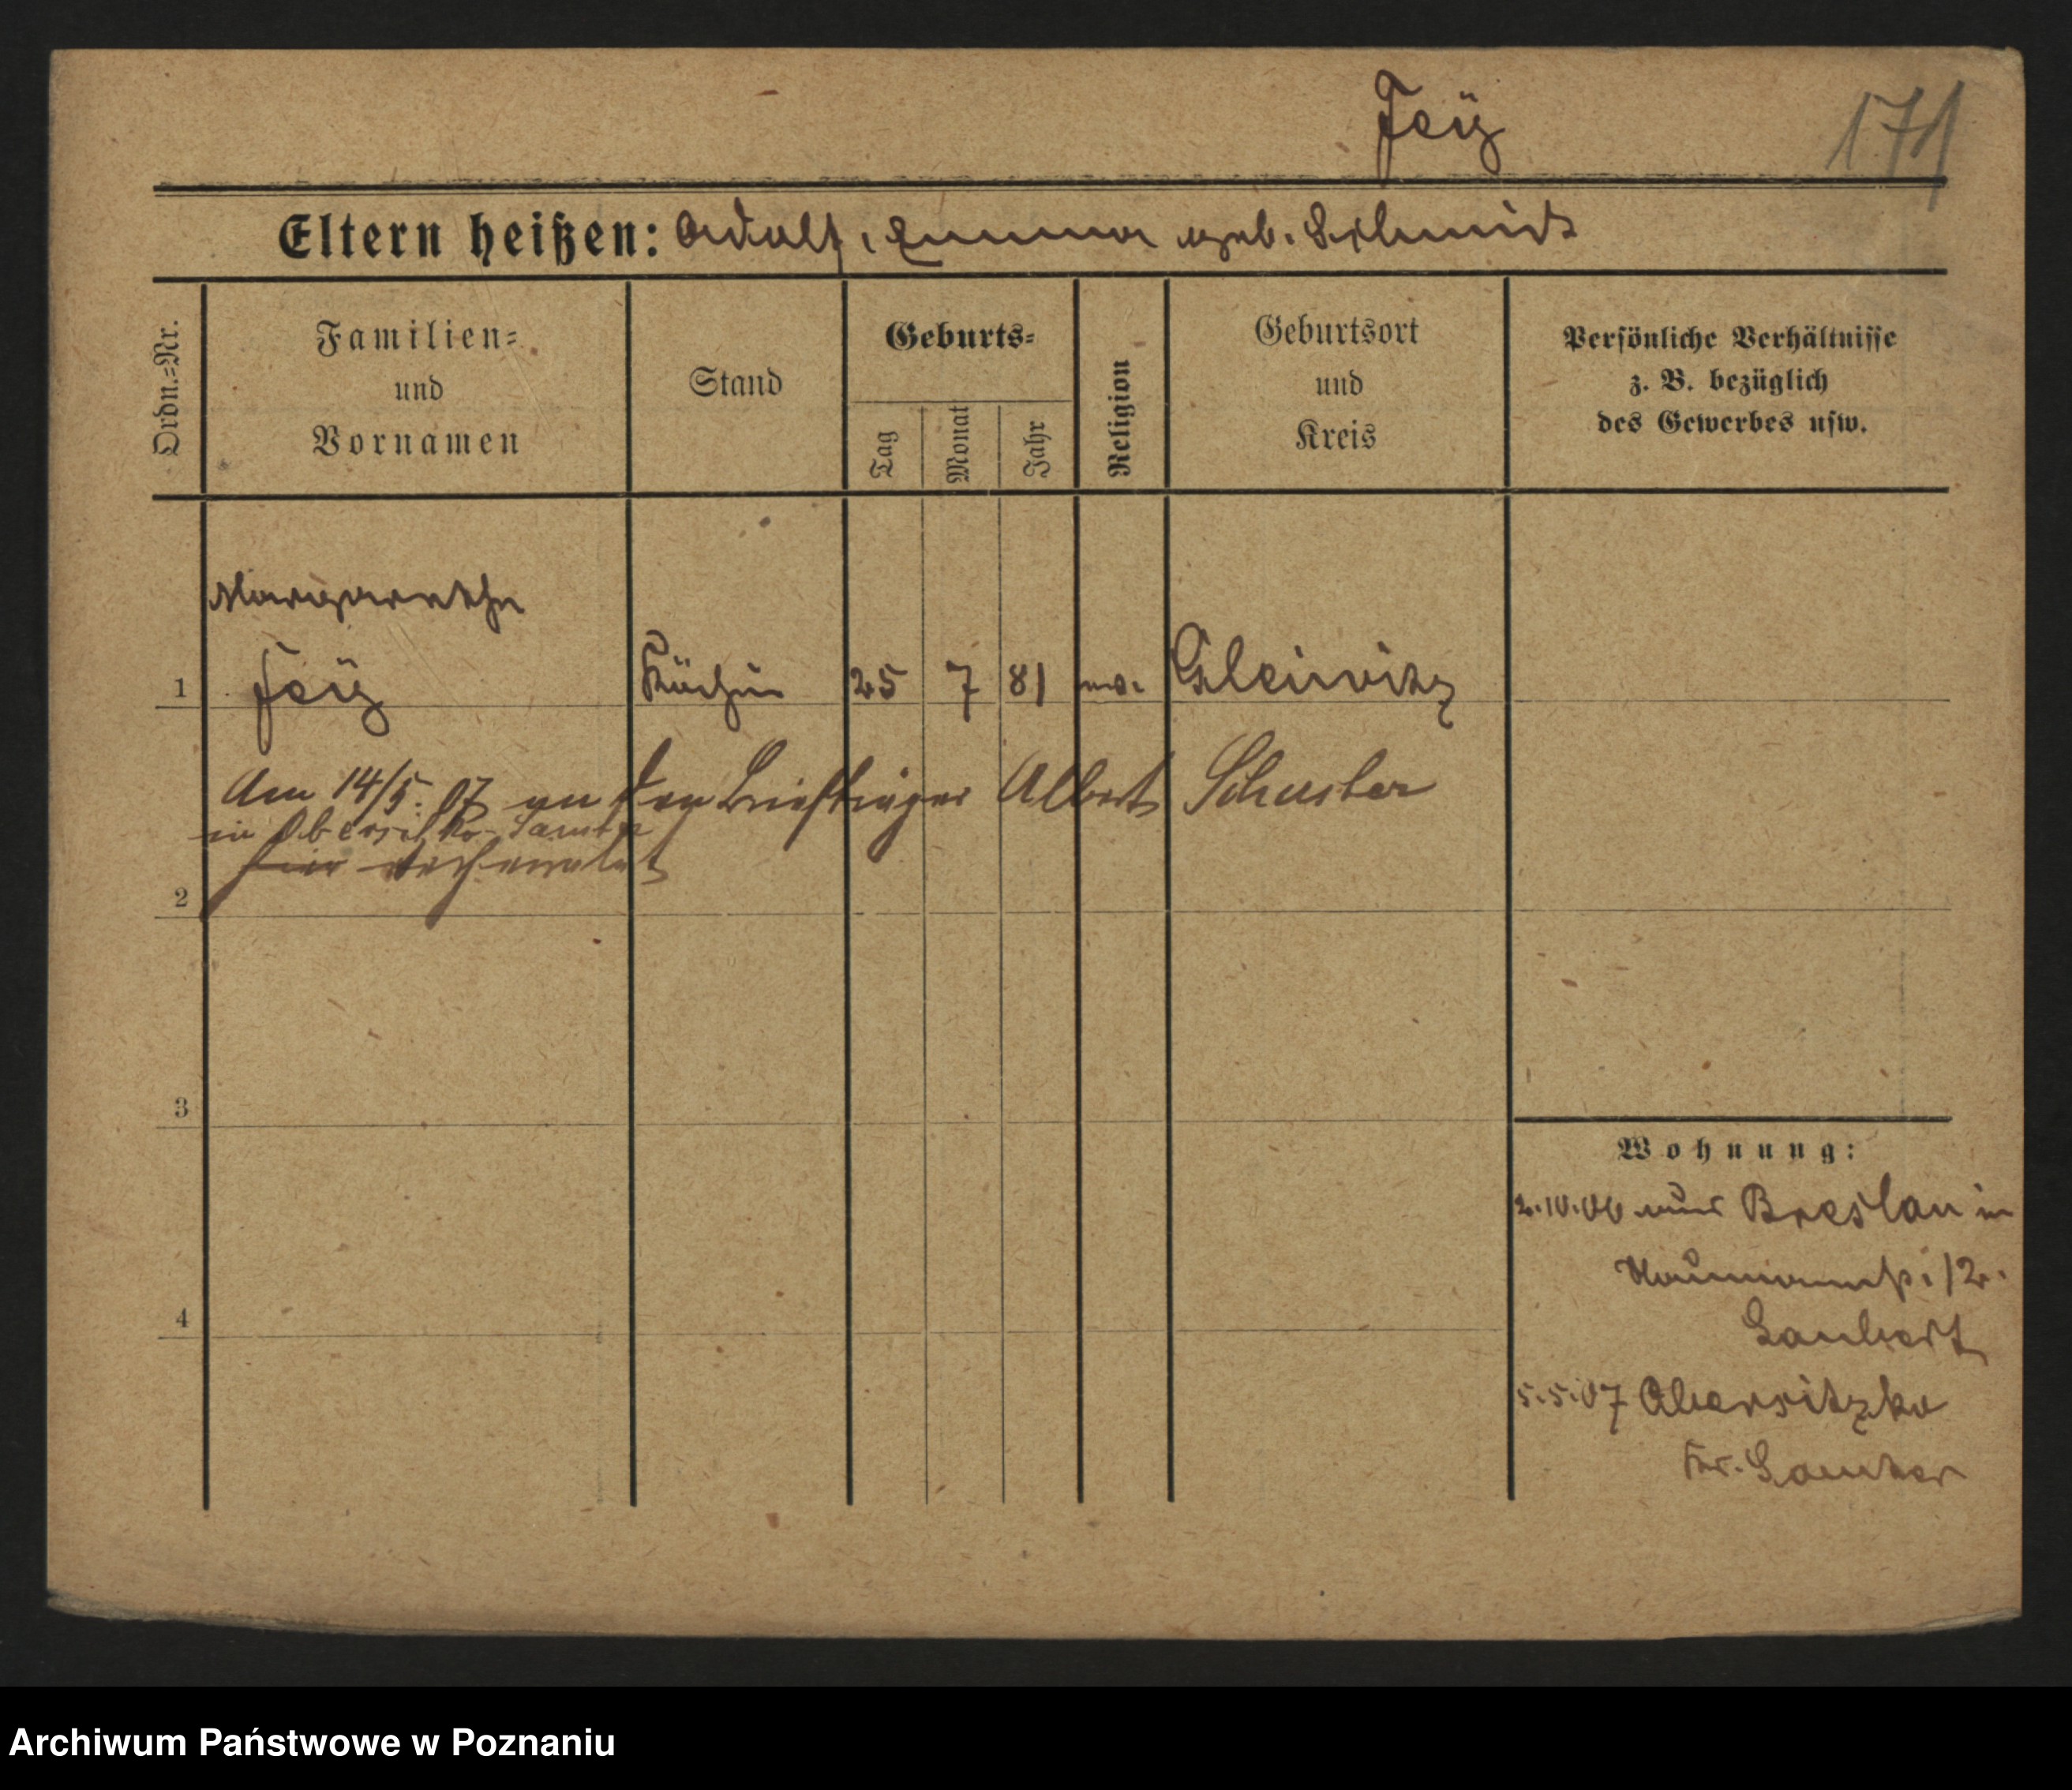 Feÿ
171
Eltern heißen: Adolf, Emma geb. Schmidt
Ordn.=Nr.
Familien=
und
Vornamen
Stand
Geburts=
Tag
Monat
Jahr
Religion
Geburtsort
und
Kreis
Persönliche Verhältnisse
z. B. bezüglich
des Gewerbes usw.
Margarethe
1 Feÿ Köchin 25 7 81 ev. Gleiwitz
Am 14/5. 07 an den Briefträger Albert Schuster
in Obersitzko-Samter
hier verheiratet
2
3
4
Wohnung:
2.10.06 aus Breslau in
Naumannstr. 12.
5.5.07 Obersitzko
Kr. Samter
Archiwum Państwowe w Poznaniu